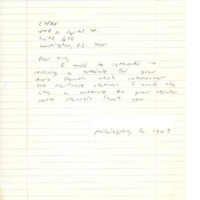 CSPAN
444 N. Capitol St.
Suite 620
Washington, D.C. 20001
Dear sirs,
I would be interested in
receiving a schedule for your
radio channels which retransmit
the shortwave stations. I would also
like a schedule for your regular
cable channels. Thank you.
Philadelphia Pa.